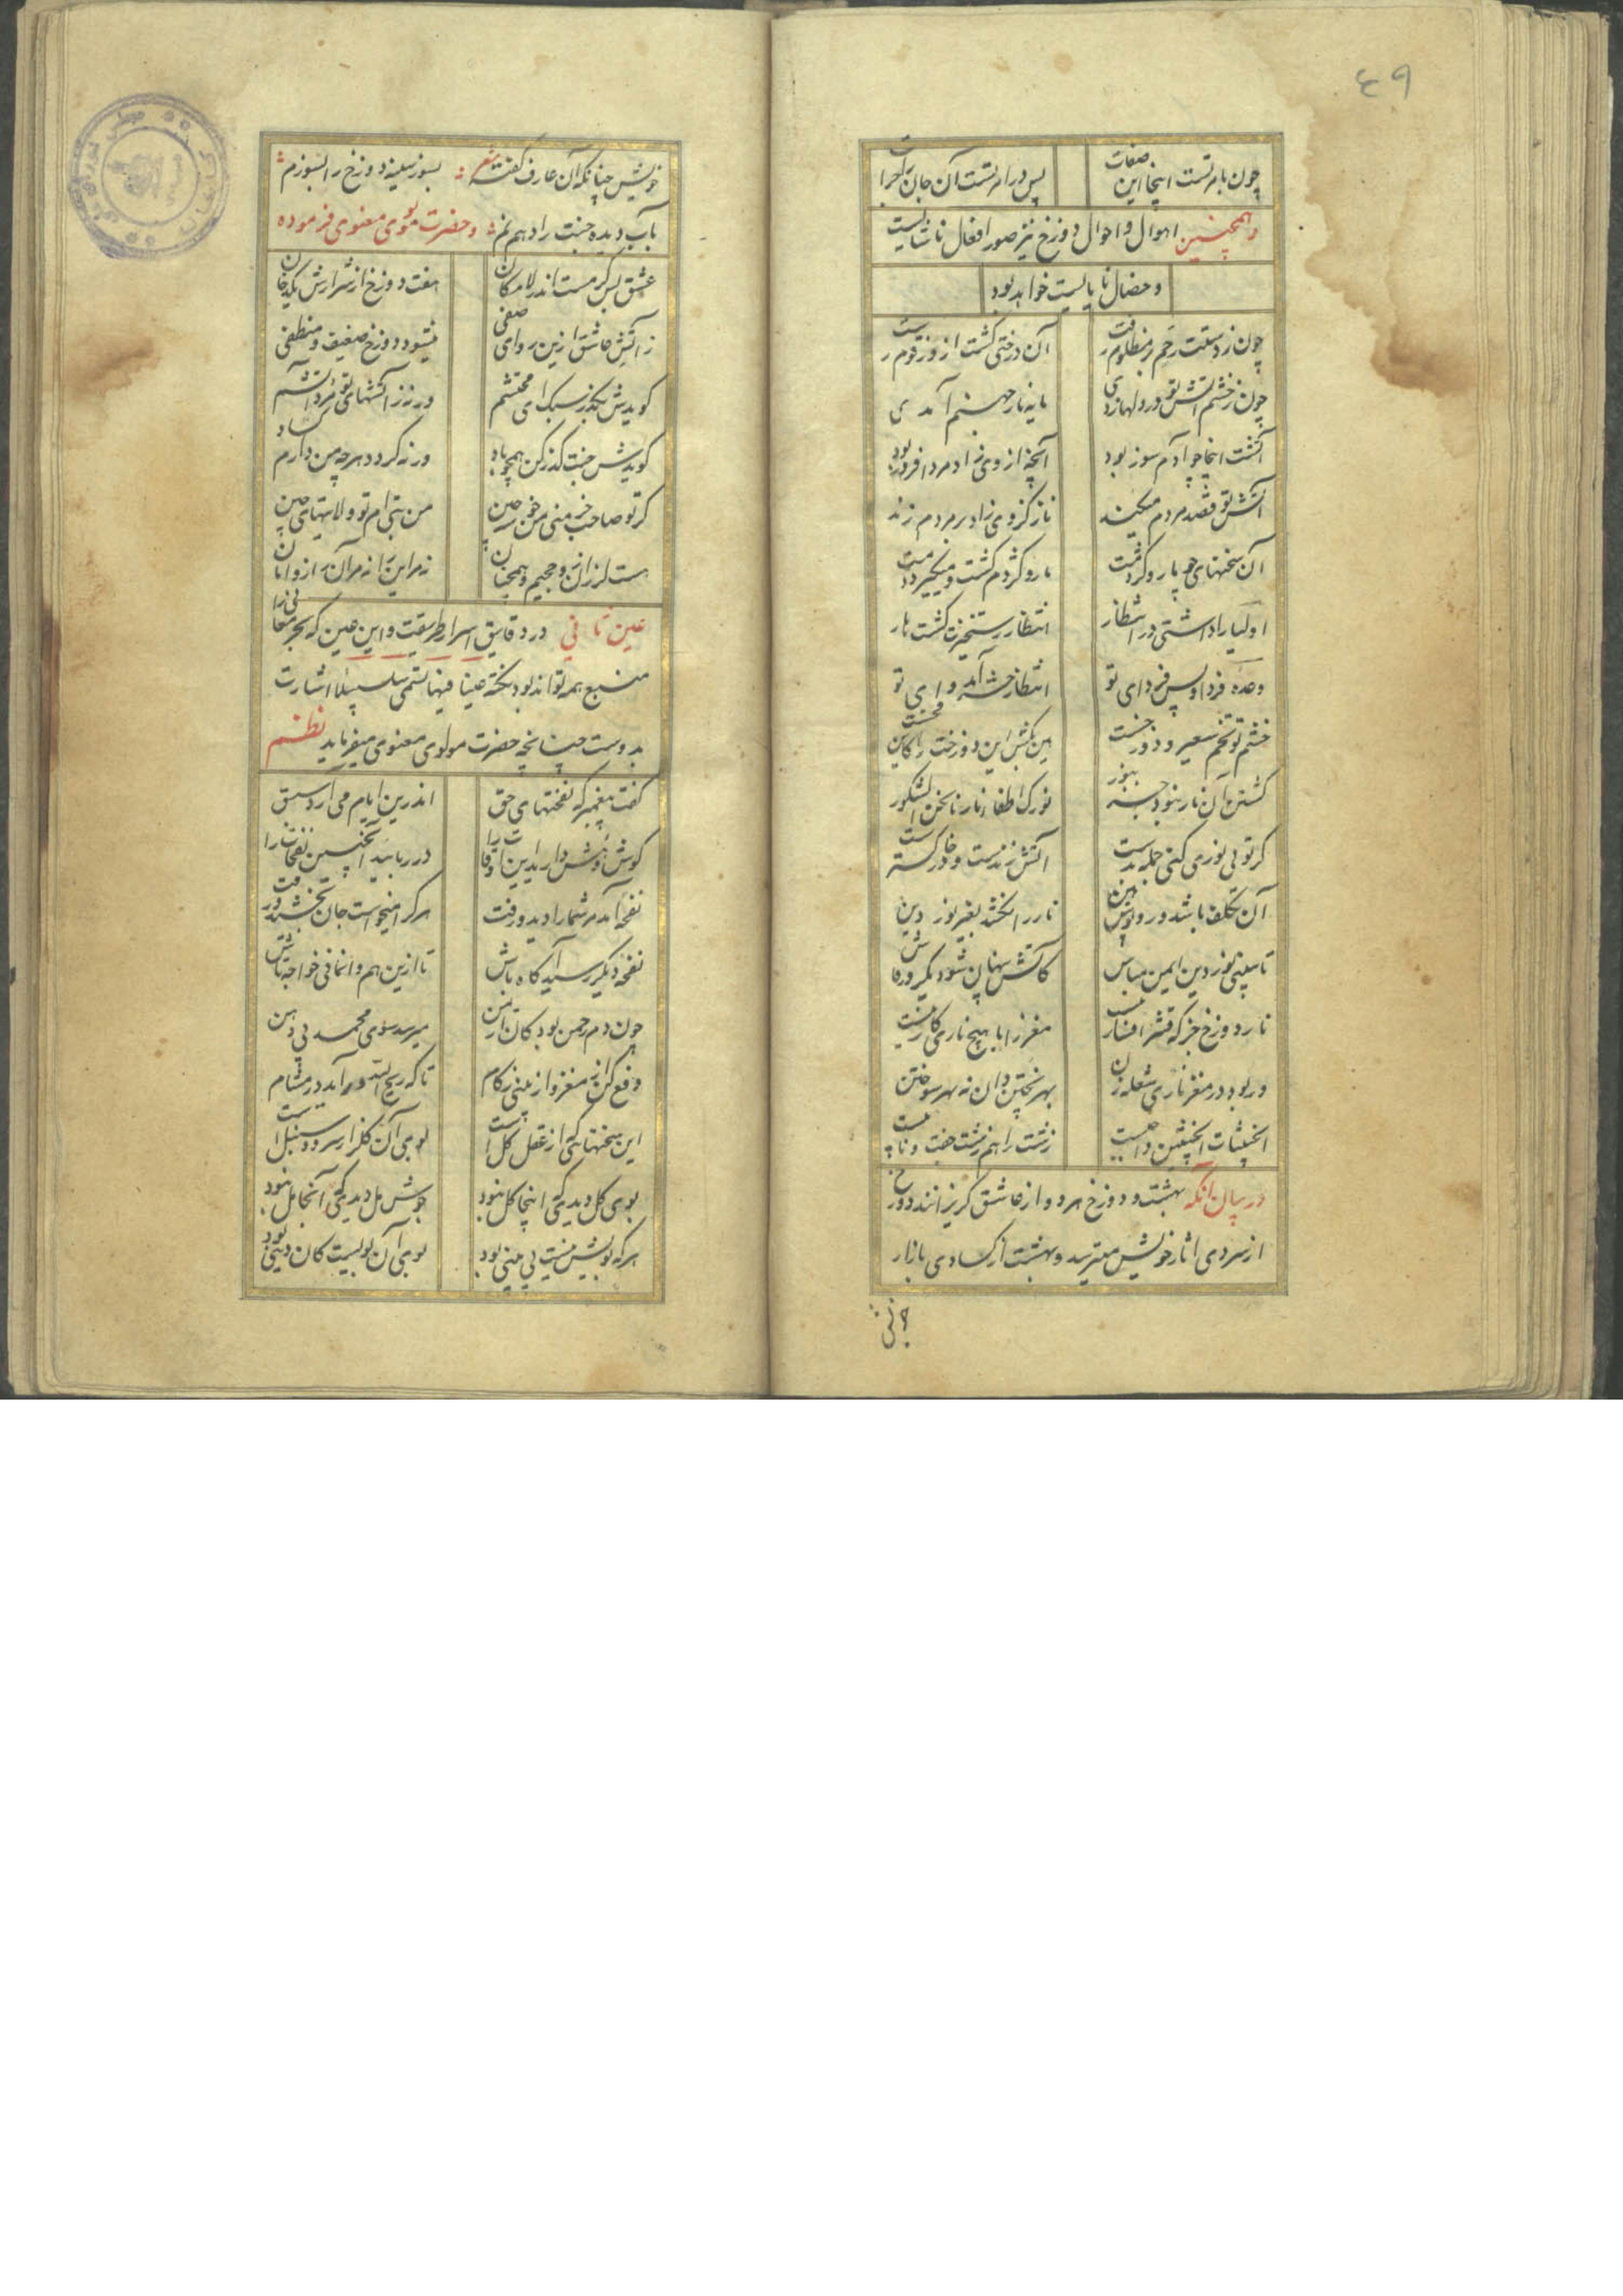 ٤٩
چون بامرتست اینجا این صفات
پس در امر تست آن جان جزات
وهمچنین اهوال و احوال دوزخ نیز صور افعال ناشایست
وخصال نابایست خواهد بود
چون ز دستت زخم بر مظلوم رست
آن درختی گشت ازو زقوم رست
چون ز خشم آتش تو در دلها زدی
مایه نار جهنم آمدی
آتشت اینجا چو آدم سوز بود
آنچه از وی زاد مرد افروز بود
آتش تو قصد مردم میکند
نار کز وی زاد بر مردم زند
آن سخنهای چو مار و کژدمت
مار و کژدم گشت و میگیرد دمت
اولیا را داشتی در انتظار
انتظار رستخیزت گشت یار
وعده فردا و پس فردای تو
انتظار حشرت آمد وای تو
خشم تو تخم سعیر دوزخست
هین بکش این دوزخت را کاین فخست
کشتن آن نار نبود جز بنور
نورک اطفا نارنا نحن الشکور
گر تو بی نوری کنی حلمی بدست
آتشت زندست و در خاکسترست
آن تکلف باشد و روپوش هین
نار را نکشد بغیر نور دین
تا نبینی نور دین ایمن مباش
کاتش پنهان شود یکروز فاش
نار دوزخ جز که قشر افشار نیست
مغز را با هیچ ناری کار نیست
ور بود در مغز ناری شعله زن
بهر پختن دان نه بهر سوختن
الخبیثات الخبیثین
زشت را هم زشت جفت و
در بیان آنکه بهشت و دوزخ هر دو از عاشق گریزانند دوزخ
از سردی اثار خویش میترسد و بهشت از کسادی بازار
خویش چنانکه آن عارف گفته شعر بسوز سینه دوزخ را بسوزم
بآب دیده جنت را دهم نم وحضرت مولوی معنوی فرموده
عشق بس گرمست اندر لامکان
هفت دوزخ از شرارش یک دخان
ز آتش عاشق ازین رو ای صفی
میشود دوزخ ضعیف و منطفی
گویدش بگذر سبک ای محتشم
ورنه ز آتشهای تو مرد آتشم
گویدش جنت گذر کن همچو باد
ورنه گردد هر چه من دارم کساد
گر تو صاحب خرمنی من خوشه چین
من بتی ام تو ولایتهای چین
هست لرزان زو جحیم و هم جنان
نه مر این را نه مر آن را زو امان
عین ثانی در دقایق اسرار طریقت و این عین که بحر معانی را
منبع همه تواند بود نکته عینا فیها تسمی سلسبیلا اشارت
بدوست چنانچه حضرت مولوی معنوی میفرماید نظم
گفت پیغمبر که نفحتهای حق
اندرین ایام می آرد سبق
گوش و هش دارید این اوقات را
در ربایید اینچنین نفحات را
نفحه آمد مر شما را دید و رفت
هر کرا میخواست جان بخشید و رفت
نفحه دیگر رسید آگاه باش
تا ازین هم وانمانی خواجه تاش
چون دم رحمن بود کان از یمن
میرسد سوی محمد بی دهن
دفع کن از مغز و از بینی زکام
تا که ریح الله در آید در مشام
این سخنهایی که از عقل کل است
بوی آن گلزار سرو و سنبل است
بوی گل دیدی که آنجا گل نبود
جوش مل دیدی که آنجا مل نبود
هر که بویش نیست بی بینی بود
بوی آن بویست کان دینی بود